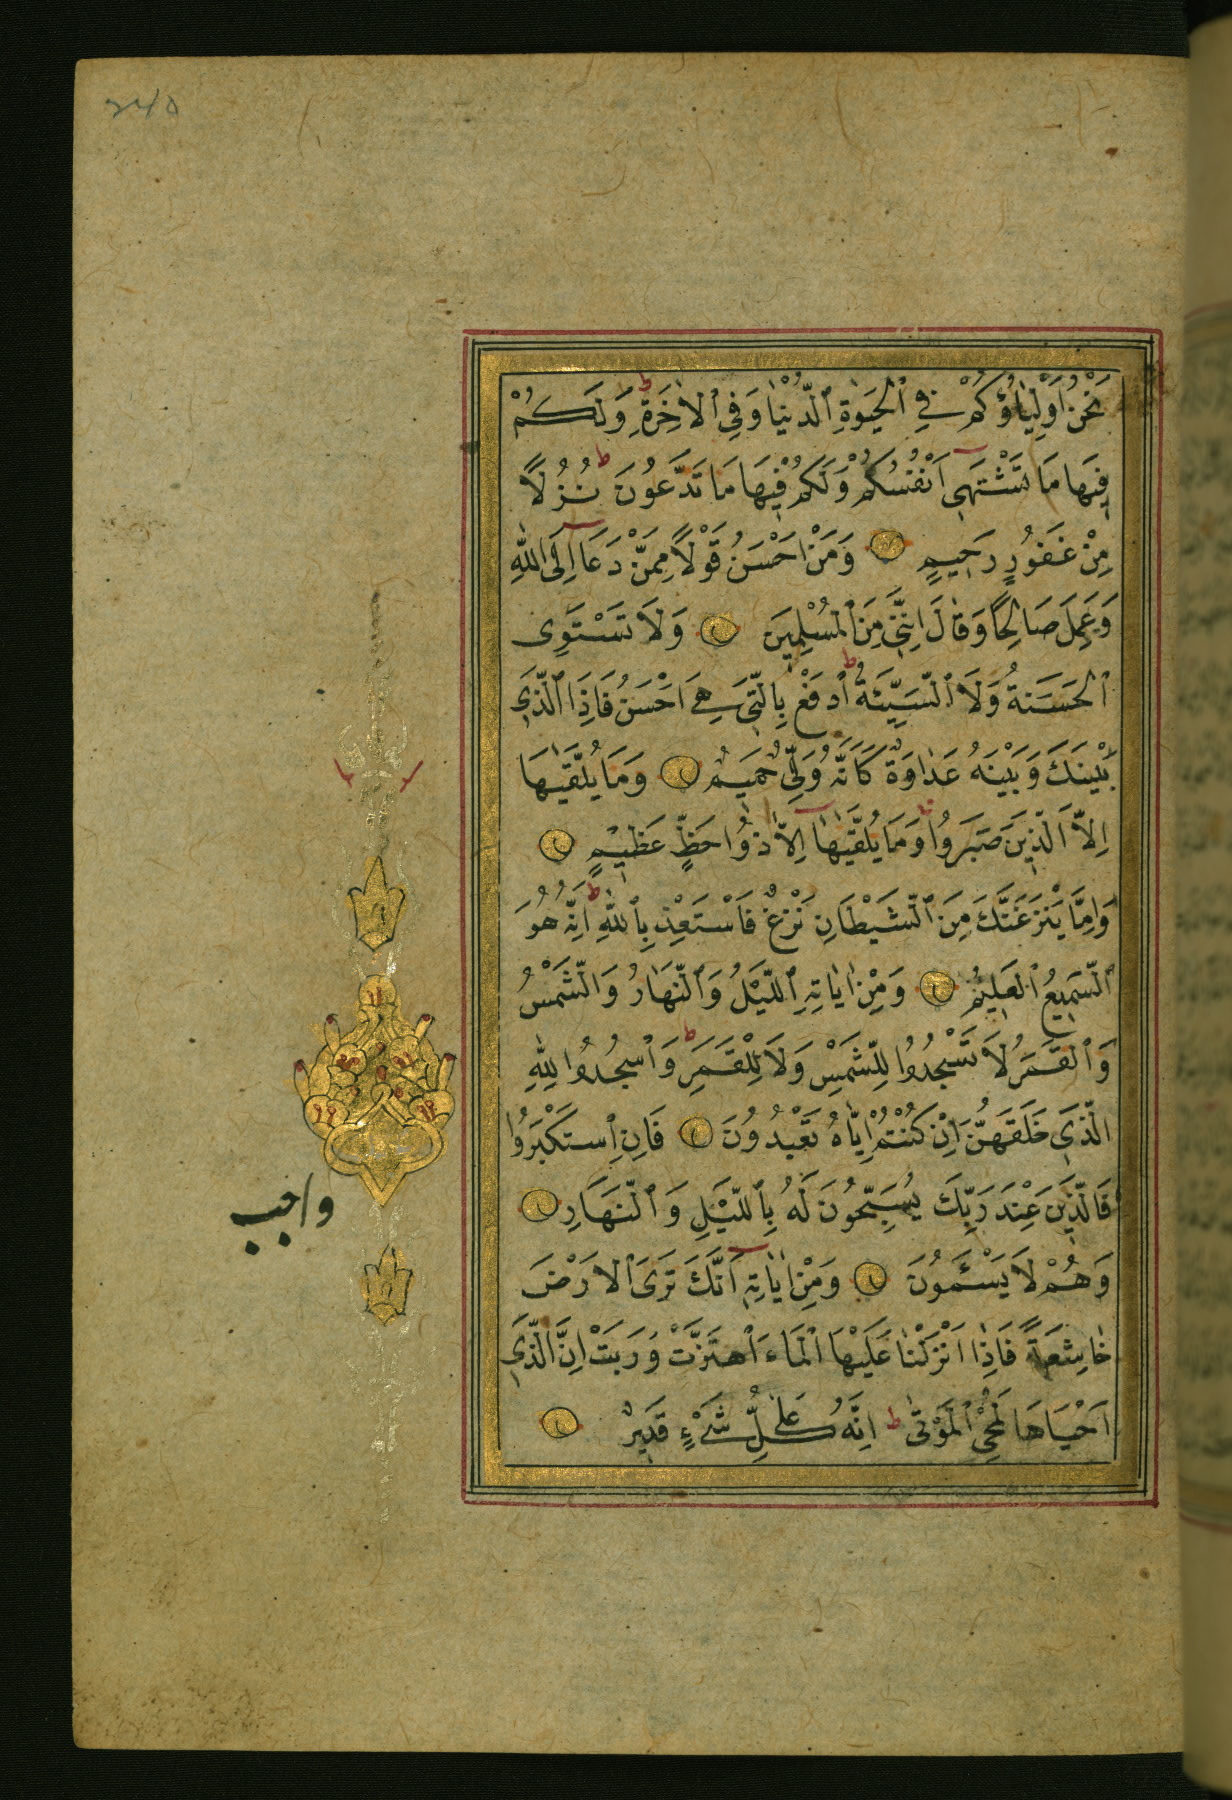 نَحْنُ اَوْلِيَاؤُكُمْ فِي الْحَيٰوةِ الدُّنْيَا وَفِي الْاٰخِرَةِ وَلَكُمْ
فِيهَا مَا تَشْتَهِي اَنْفُسُكُمْ وَلَكُمْ فِيهَا مَا تَدَّعُونَ نُزُلًا
مِنْ غَفُورٍ رَحِيمٍ وَمَنْ اَحْسَنُ قَوْلًا مِمَّنْ دَعَا اِلَى اللهِ
وَعَمِلَ صَالِحًا وَقَالَ اِنَّنِي مِنَ الْمُسْلِمِينَ وَلَا تَسْتَوِى
الْحَسَنَةُ وَلَا السَّيِّئَةُ اِدْفَعْ بِالَّتِي هِيَ اَحْسَنُ فَاِذَا الَّذِي
بَيْنَكَ وَبَيْنَهُ عَدَاوَةٌ كَاَنَّهُ وَلِيٌّ حَمِيمٌ وَمَا يُلَقّٰيهَا
اِلَّا الَّذِينَ صَبَرُوا وَمَا يُلَقّٰيهَا اِلَّا ذُوا حَظٍّ عَظِيمٍ
وَاِمَّا يَنْزَغَنَّكَ مِنَ الشَّيْطَانِ نَزْغٌ فَاسْتَعِذْ بِاللهِ اِنَّهُ هُوَ
السَّمِيعُ الْعَلِيمُ وَمِنْ اٰيَاتِهِ اللَّيْلُ وَالنَّهَارُ وَالشَّمْسُ
وَالْقَمَرُ لَا تَسْجُدُوا لِلشَّمْسِ وَلَا لِلْقَمَرِ وَاسْجُدُوا لِلّٰهِ
الَّذِي خَلَقَهُنَّ اِنْ كُنْتُمْ اِيَّاهُ تَعْبُدُونَ فَاِنِ اسْتَكْبَرُوا
فَالَّذِينَ عِنْدَ رَبِّكَ يُسَبِّحُونَ لَهُ بِاللَّيْلِ وَالنَّهَارِ
وَهُمْ لَا يَسْئَمُونَ وَمِنْ اٰيَاتِهِ اَنَّكَ تَرَى الْاَرْضَ
خَاشِعَةً فَاِذَا اَنْزَلْنَا عَلَيْهَا الْمَاءَ اهْتَزَّتْ وَرَبَتْ اِنَّ الَّذِي
اَحْيَاهَا لَمُحْيِ الْمَوْتٰى اِنَّهُ عَلٰى كُلِّ شَيْءٍ قَدِيرٌ
واجب